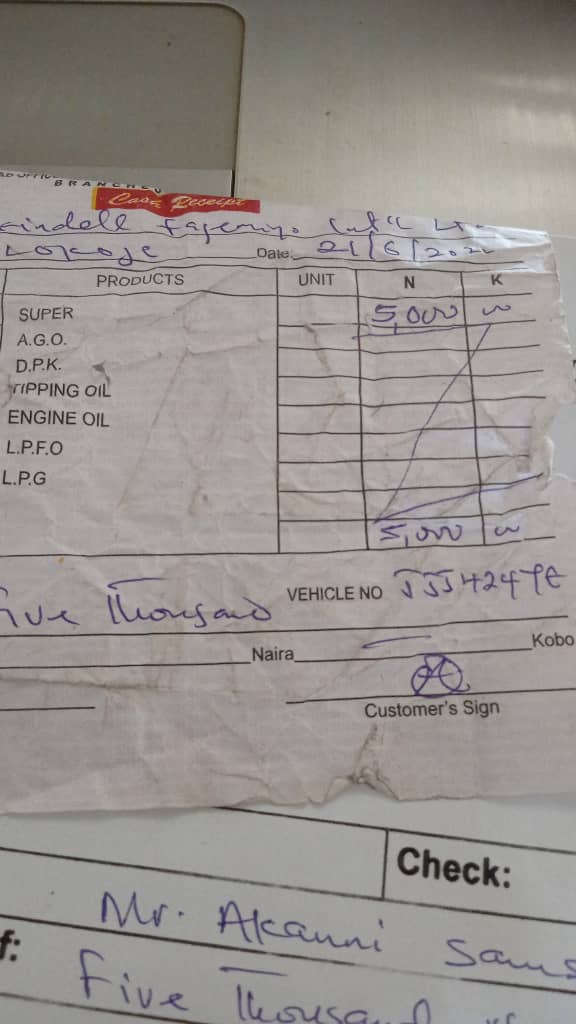 BRANCHES
Cash Receipt
Lokoja Date: 21/6/2022
PRODUCTS UNIT N K
SUPER 5,000 00
A.G.O.
D.P.K.
TIPPING OIL
ENGINE OIL
L.P.F.O
L.P.G
5,000 00
Five Thousand VEHICLE NO
Naira Kobo
Customer's Sign
Check:
Mr. Akanni
f: Five Thousand